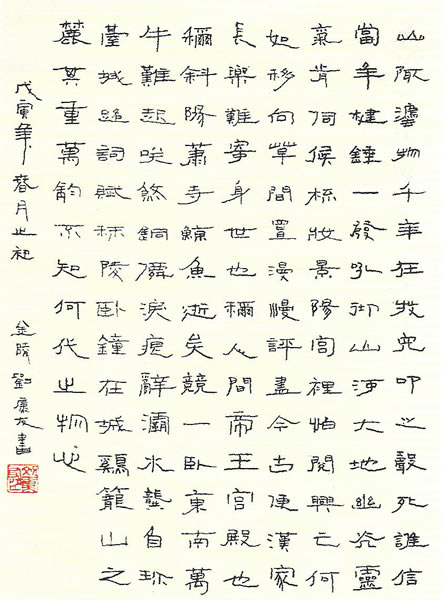 山陬灋物千年在牧兒叩之聲死誰信
當年楗錘一發吼彻山河大地幽光靈
氣肯伺候梳妝景陽宮裡怕閱興亡何
如移向草間置漫漫評盡今古便漢家
長樂難寄身世也稱人間帝王宮殿也
稱斜陽蕭寺鯨魚逝矣竞一卧東南萬
牛難起咲煞銅僊淚痕辭灞水龔自珍
臺城路詞賦秣陵卧鐘在城鷄籠山之
麓其重萬鈞不知何代之物也
戊寅年春月之初 金陵劉友書